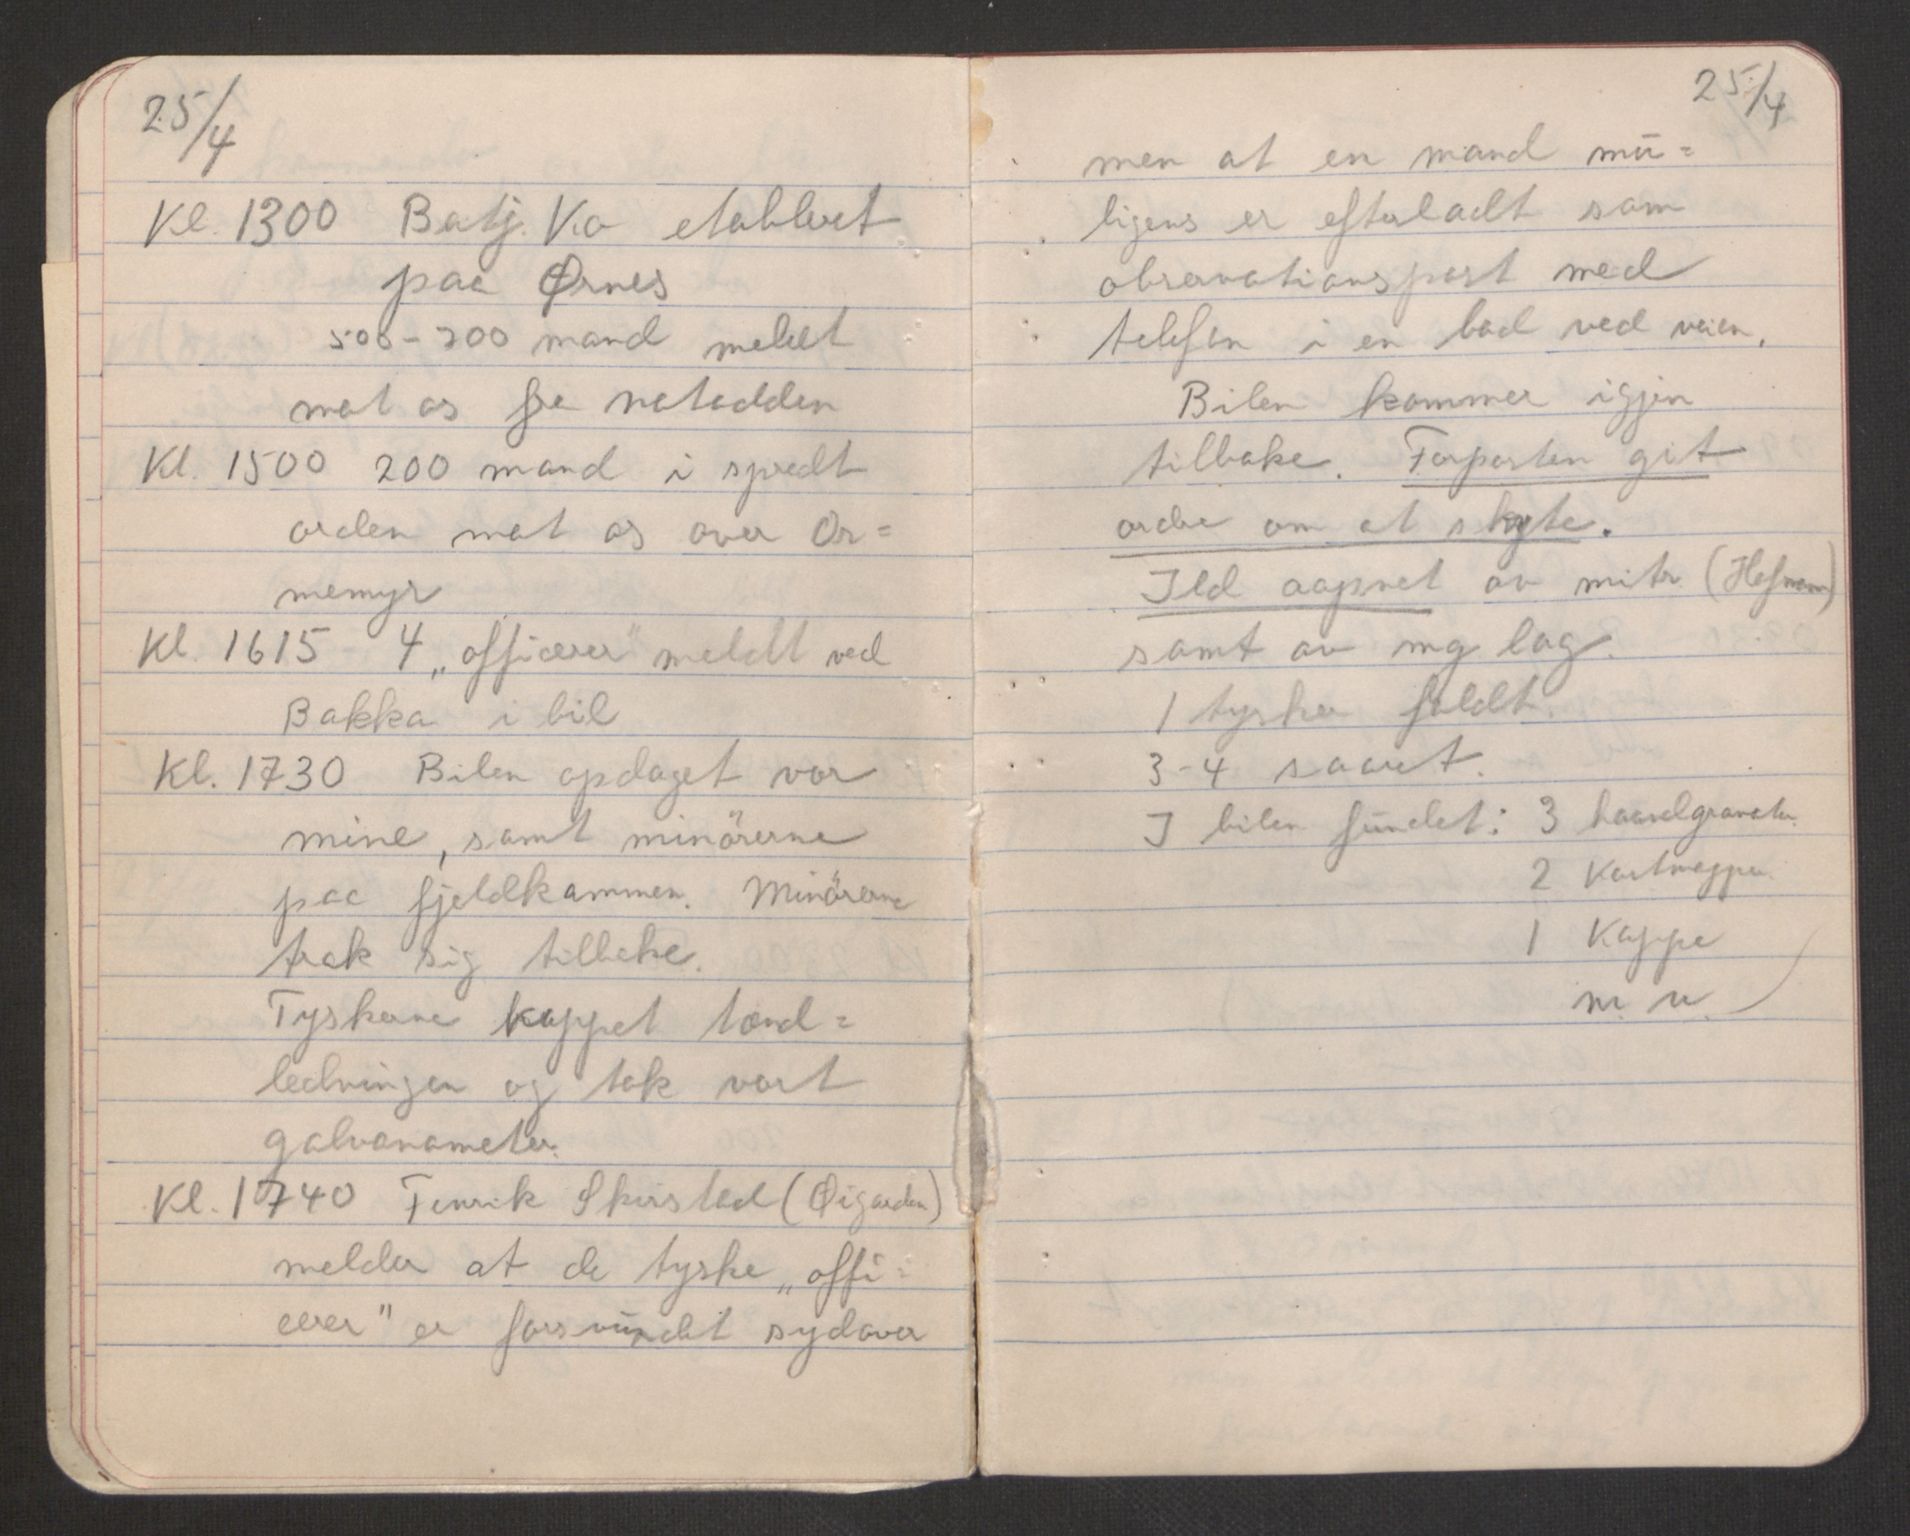 25/4
Kl. 1300 Batj. Ko etablert
paa Ørnes
500-700 mand meldt
mot os fra Notodden
Kl. 1500 200 mand i spredt
orden mot os over Or=
memyr
Kl. 1615 - 4 „officerer" meldt ved
Bakka i bil
Kl. 1730 Bilen opdaget vor
mine, samt minörerne
paa fjeldkammen. Minörerne
trak sig tilbake.
Tyskerne kappet tænd=
ledningen og tok vort
galvanometer.
Kl. 1740 Fenrik Skirstad (Øigarden)
melder at de tyske „offi=
cerer" er forsvundet sydover
25/4
men at en mand mu=
ligens er efterladt som
observationspost med
telefon i en bod ved veien.
Bilen kommer igjen
tilbake. Forposten git
ordre om at skyte.
Ild aapnet av mitr. (Hofmann)
samt av mg lag.
1 tysker faldt.
3-4 saaret.
I bilen fundet: 3 haandgranater.
2 Kartmapper.
1 Kappe
m. m.